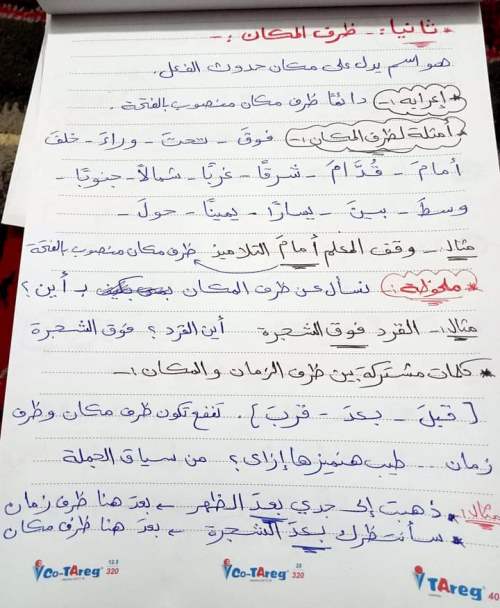 * ثانيا :- ظرف المكان :-
هو اسم يدل على مكان حدوث الفعل.
* إعرابه :- دائمًا ظرف مكان منصوب بالفتحة .
* أمثلة لظرف المكان :- فوقَ - تحتَ - وراءَ - خلفَ
أمامَ - قُدَّامَ - شرقًا - غربًا - شمالاً - جنوبًا -
وسطَ - بينَ - يسارًا - يمينًا - حولَ -
مثال :- وقف المعلم أمامَ التلاميذ ظرف مكان منصوب بالفتحة
* ملحوظة : نسأل عن ظرف المكان بـ أين ؟
مثال :- القرد فوق الشجرة أين القرد ؟ فوق الشجرة
* كلمات مشتركة بين ظرف الزمان والمكان :-
[ قبلَ - بعدَ - قربَ ] . تنفع تكون ظرف مكان وظرف
زمان .. طيب هنميزها إزاى ؟ من سياق الجملة
مثال : * ذهبت إلى جدي بعدَ الظهر ← بعد هنا ظرف زمان
* سأنتظرك بعدَ الشجرة ← بعد هنا ظرف مكان
Co-TAreg 12.5 320
Co-TAreg 25 320
TAreg 40